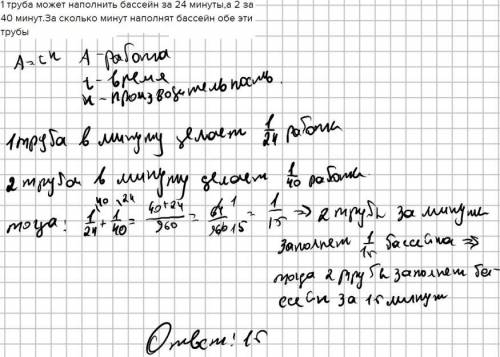 1 труба может наполнить бассейн за 24 минуты,а 2 за
40 минут.За сколько минут наполнят бассейн обе эти
трубы
A - работа
t - время
н - производительность.
1 труба в минуту делает 1/24 работы
2 труба в минуту делает 1/40 работы
тогда: 1/24 + 1/40 = 40+24/960 = 64/960 = 1/15 => 2 трубы за минуту
заполнят 1/15 бассейна =>
тогда 2 трубы заполнят бас-
сейн за 15 минут
Ответ: 15